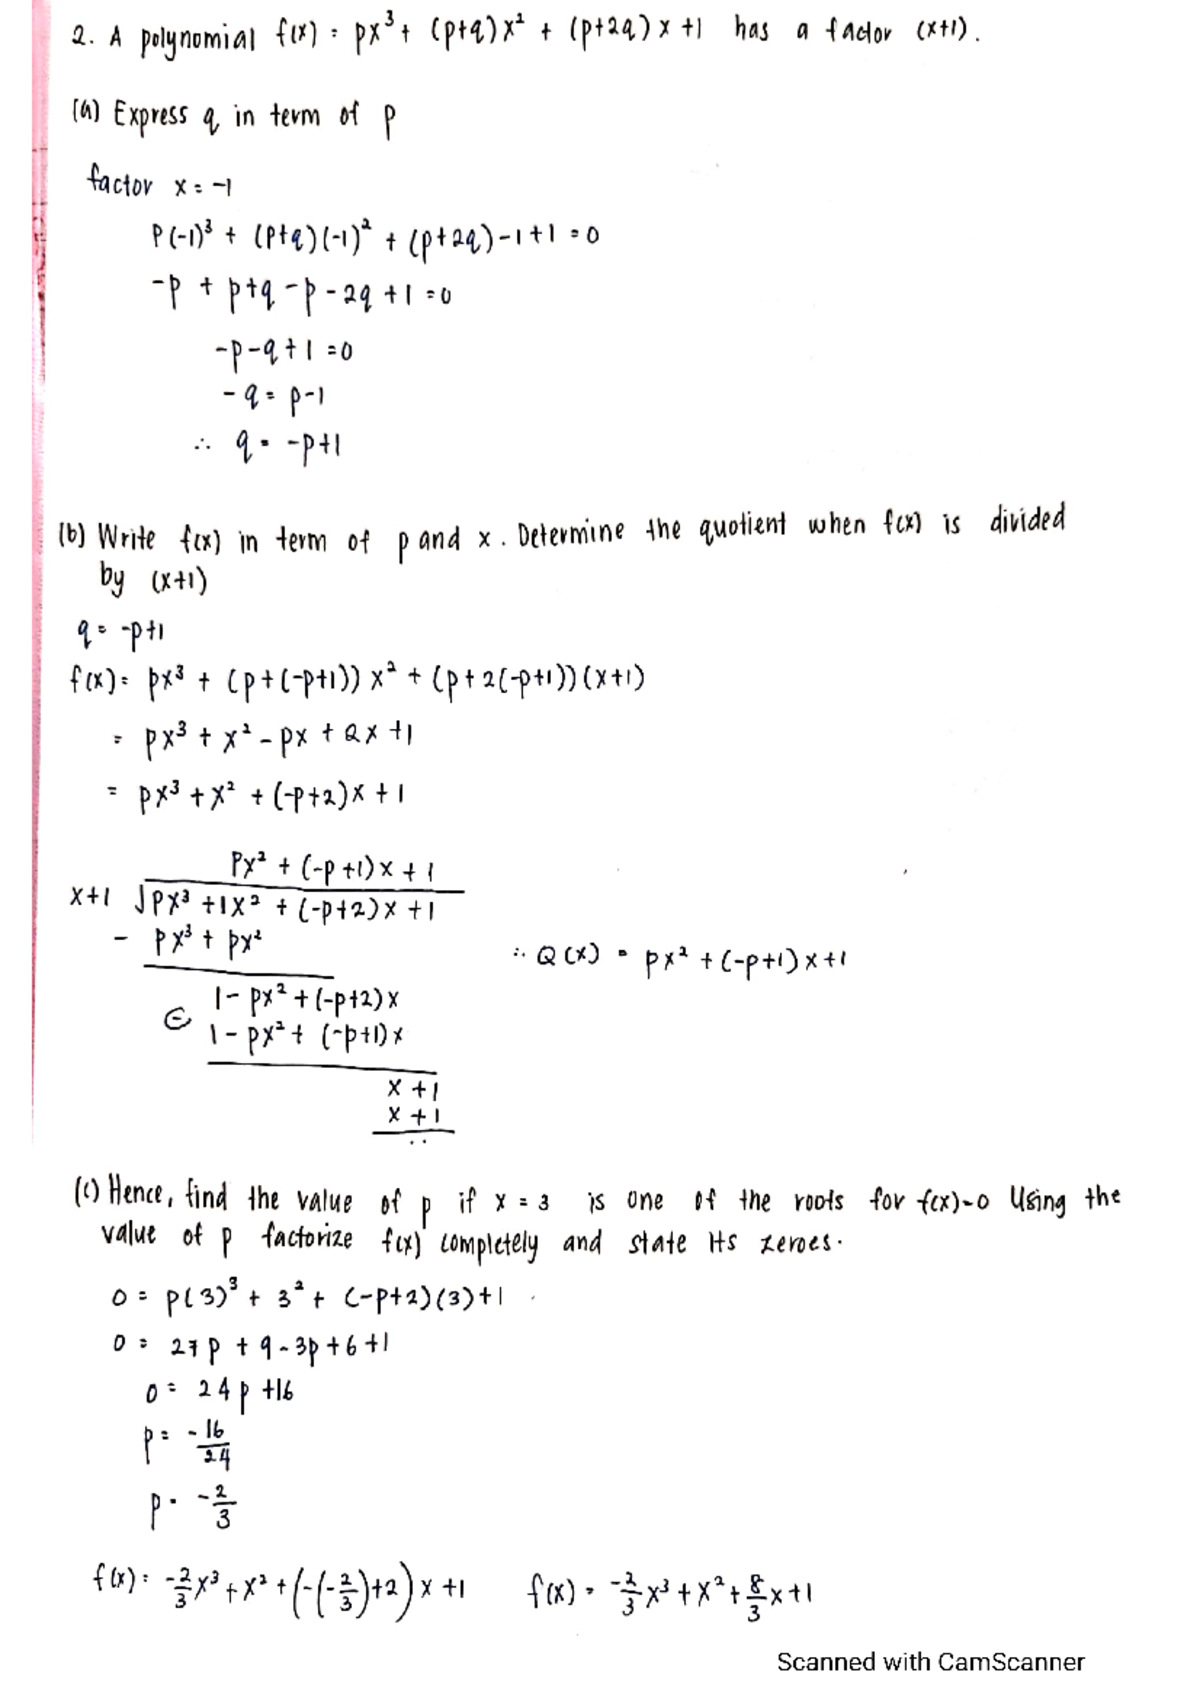 2. A polynomial f(x) = px³ + (p+q)x² + (p+2q)x +1 has a factor (x+1).
(a) Express q in term of p
factor x = -1
P(-1)³ + (p+q)(-1)² + (p+2q)-1+1 = 0
-p + p+q -p - 2q +1 = 0
-p-q+1 = 0
-q = p-1
∴ q = -p+1
(b) Write f(x) in term of p and x. Determine the quotient when f(x) is divided
by (x+1)
q = -p+1
f(x) = px³ + (p+(-p+1)) x² + (p+2(-p+1))(x+1)
= px³ + x² - px + 2x +1
= px³ + x² + (-p+2)x + 1
Px² + (-p+1)x + 1
x+1 √px³ +1x² + (-p+2)x +1
- px³ + px²
∴ Q(x) = px² + (-p+1)x+1
1- px² + (-p+2)x
⊖ 1- px² + (-p+1)x
x +1
x +1
..
(c) Hence, find the value of p if x = 3 is one of the roots for f(x)=0 Using the
value of p factorize f(x) completely and state its zeroes.
0 = p(3)³ + 3² + (-p+2)(3)+1
0 = 27p + 9 - 3p + 6 +1
0 = 24p +16
p = -16/24
p = -2/3
f(x) = -2/3x³ + x² + (-(-2/3)+2) x +1 f(x) = -2/3x³ + x² + 8/3x+1
Scanned with CamScanner